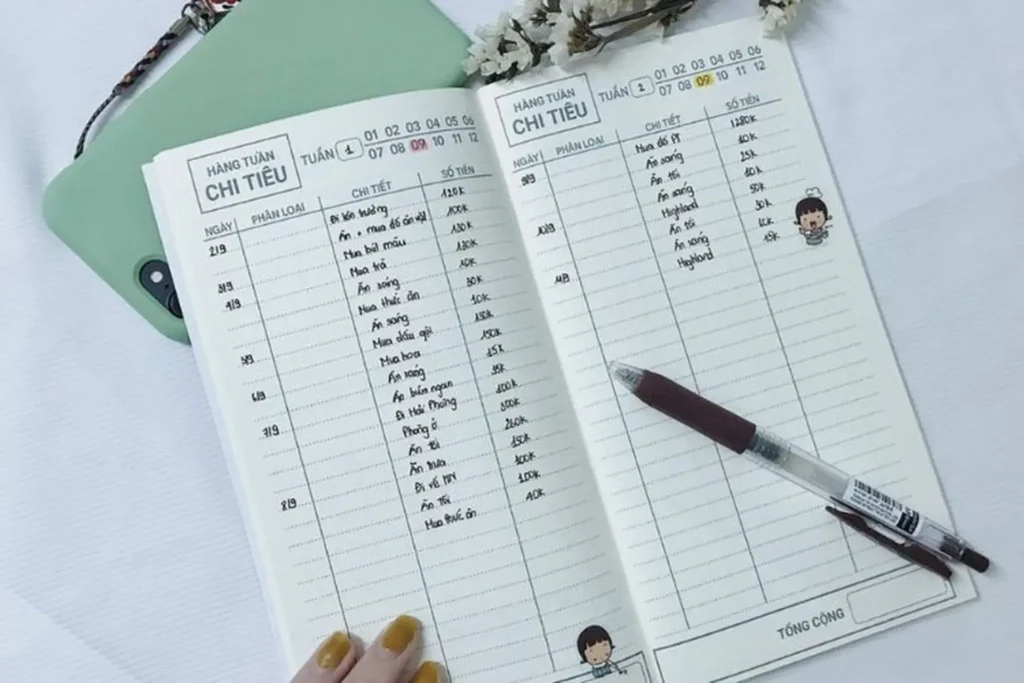 HÀNG TUẦN
CHI TIÊU
TUẦN 1
01 02 03 04 05 06
07 08 09 10 11 12
NGÀY PHÂN LOẠI CHI TIẾT SỐ TIỀN
2/9 Đi lên trường 120k
Ăn + mua đồ ăn vặt 100k
Mua bút màu 130k
3/9 Mua trà 130k
4/9 Ăn sáng 10k
Mua thức ăn 30k
Ăn sáng 10k
5/9 Mua dầu gội 150k
Mua hoa 150k
6/9 Ăn sáng 15k
Ăn bún ngan 35k
7/9 Đi Hải Phòng 100k
Phòng ở 300k
Ăn tối 260k
Ăn trưa 150k
8/9 Đi về 100k
Ăn tối 100k
Mua thức ăn 40k
HÀNG TUẦN
CHI TIÊU
TUẦN 2
01 02 03 04 05 06
07 08 09 10 11 12
NGÀY PHÂN LOẠI CHI TIẾT SỐ TIỀN
9/9 Mua đồ PT 1280k
Ăn sáng 10k
Ăn tối 25k
10/9 Ăn sáng 10k
Highland 50k
Ăn tối 30k
11/9 Ăn sáng
Highland
TỔNG CỘNG